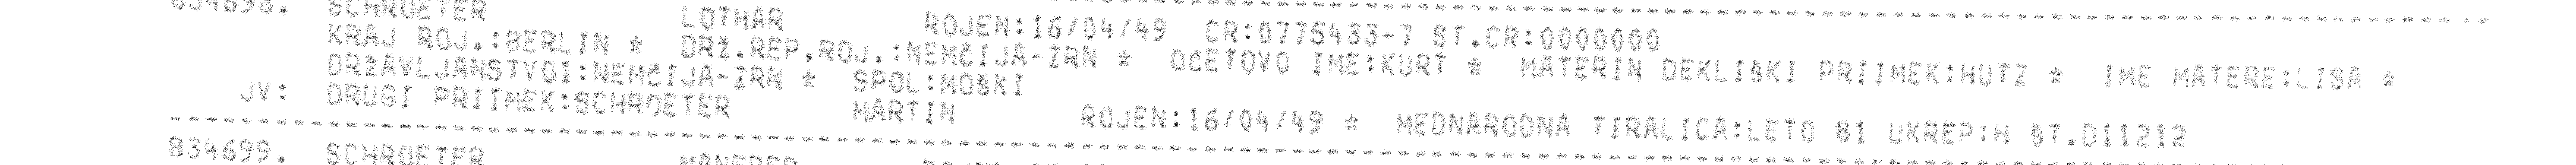 834698. SCHROETER LOTHAR ROJEN:16/04/49 CR:0775433-7 ST.CR:0000000
KRAJ ROJ.:BERLIN * DRŽ.REP.ROJ.:NEMČIJA-ZRN * OČETOVO IME:KURT * MATERIN DEKLIŠKI PRIIMEK:HUTZ * IME MATERE:LISA *
DRŽAVLJANSTVO1:NEMČIJA-ZRN * SPOL:MOŠKI
JV: DRUGI PRIIMEK:SCHROETER MARTIN ROJEN:16/04/49 * MEDNARODNA TIRALICA:LETO 81 UKREP:H ŠT.D11212
834699. SCHROETER MANFRED